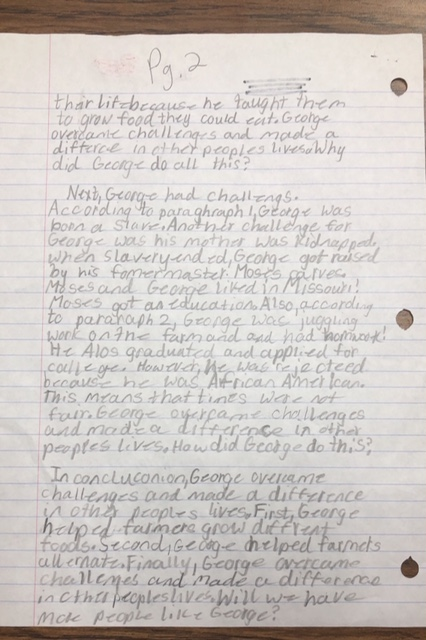 Pg. 2
thar life because he taught them
to grow food they could eat. George
overcame challenges and made a
differce in other peoples lives. Why
did George do all this?
Next, George had challengs.
According to paraghraph 1, George was
born a slave. Another challenge for
George was his mother was kidnapped.
When slavery ended, George got raised
by his fomer master. Moses carves.
Moses and George lived in Missouri!
Moses got an education. Also, according
to parahaph 2, George was juggling
work on the farm and and had homwork!
He Alos graduated and applied for
college. However, he was rejecteed
because he was African American.
This, means that times were not
fair. George overcame challenges
and made a difference in other
peoples lives. How did George do this?
In concluconion, George overcame
challenges and made a difference
in other peoples lives. First, George
helped farmers grow diffrent
foods. Second, George helped farmers
allternate. Finally, George overcame
challenges and made a difference
in other peoples lives. Will we have
more people like George?